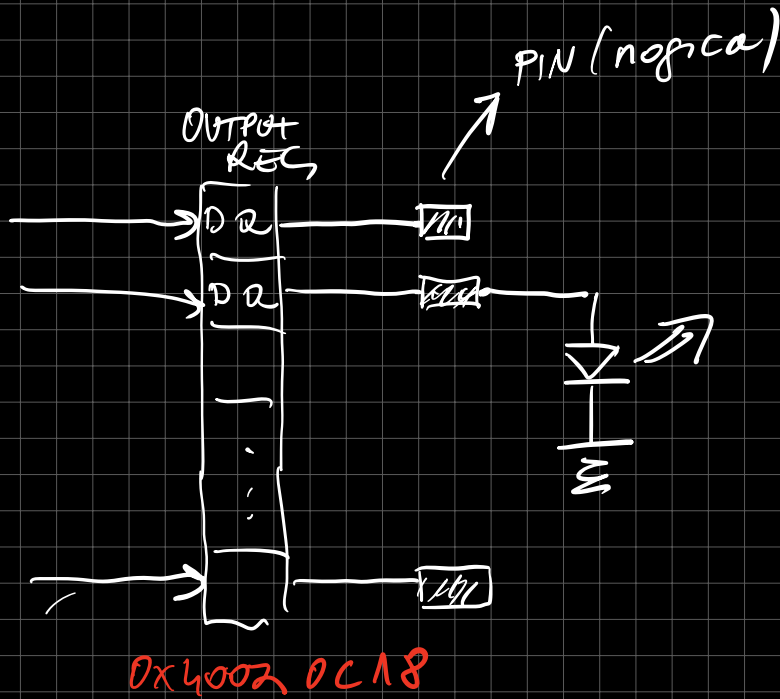 PIN (nogica)
OUTPUT
REG
D Q
D Q
0x4002 0C18